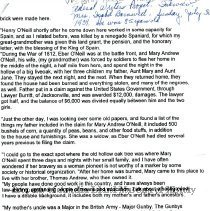 brick were made here.
"Henry O'Neill shortly after he come down here worked in some capacity for
Spain, and as I stated before, was killed by a renegade Spaniard, for which my
great-grandmother was given this land grant, the pension, and the honorary
title, with the blessing of the King of Spain.
"During the War of 1812, Eber O'Neill was at the battle front, and Mary Andrew
O'Neill, his wife, (my grandmother) was forced by soldiers to flee her home in
the middle of the night, a half mile from here, and spend the night in the
hollow of a big tree, with her three children my father, Aunt Mary and Aunt
Jane. They stayed the next night, and the next. When they returned home, they
found the house had been burned down and everything stolen, and some of the negroes,
as well. Father put in a claim against the United States Government, through
Lawyer Burritt, of Jacksonville, and was awarded $12,000, damages. The lawyer
got half, and the balance of $6,000 was divided equally between him and the two
girls.
"Just the other day, I was looking over some old papers, and found a list of the
things my father included in the claim for Mary Andrew O'Neill. It included 500
bushels of corn, a quantity of peas, beans, and other food stuffs, in addition
to the house and furnishings. She was a widow as Eber O'Neill had died several
years previous to filing the claim.
"I could go to the exact spot where the old hollow oak tree was where Mary
O'Neill spent three days and nights with her small family, and I have often
wondered if her bravery as a woman pioneer is not worthy of a marker by some
society or historical organization. After her home was burned, Mary came to this place to
live with her brother, Thomas Andrew, who then owned it.
"My people have done good work in this county, and have always been
I have a deltible background. It includes both my mother's and father's ancestors.
"My mother's uncle was a Major in the British Army - Major Gunby. The Gunbys